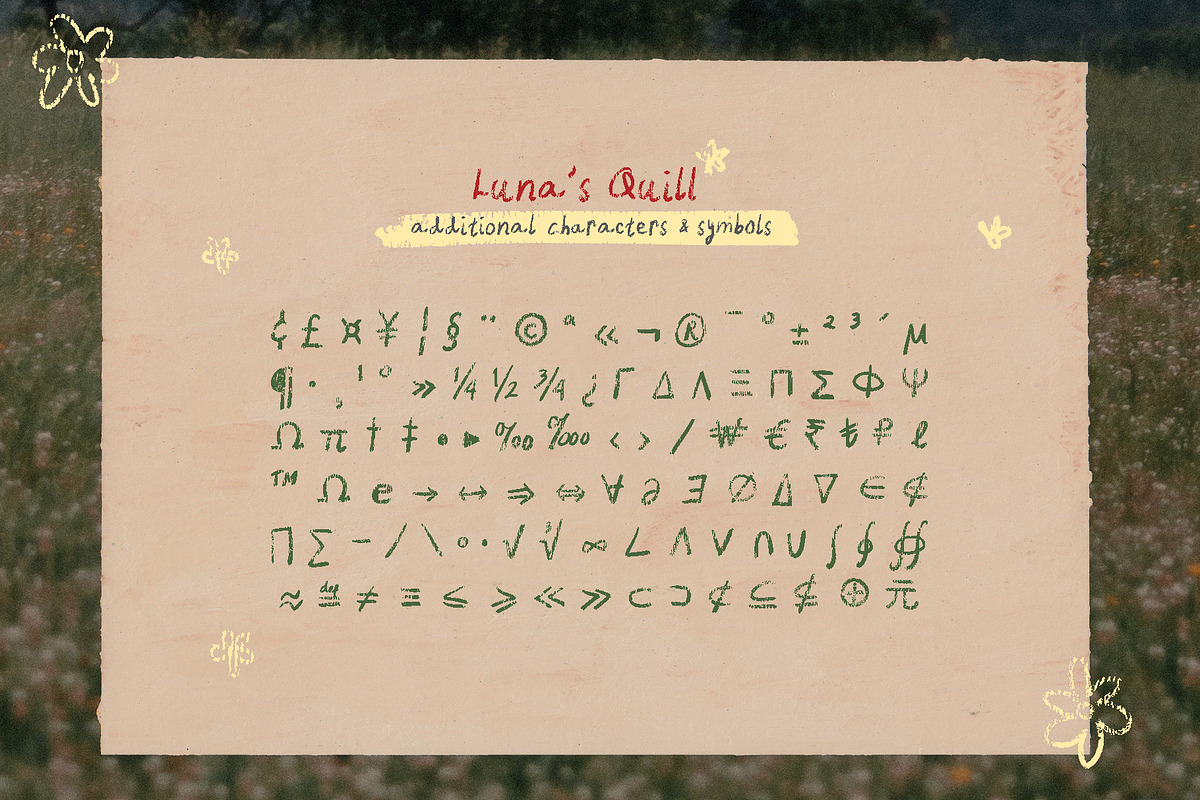 Luna's Quill
additional characters & symbols
¢ £ ¤ ¥ ¦ § ¨ © ª « ¬ ® ¯ ° ± ² ³ ´ µ
¶ · ¸ ¹ º » ¼ ½ ¾ ¿ Γ Δ Λ Ξ Π Σ Φ Ψ
Ω π † ‡ • ‣ ‰ ‱ ‹ › ⁄ ₩ € ₹ ₺ ₽ ℓ
™ Ω ℮ → ↔ ⇒ ⇔ ∀ ∂ ∃ ∅ ∆ ∇ ∈ ∉
∏ ∑ − ∕ ∖ ∘ ∙ √ ∛ ∞ ∠ ∧ ∨ ∩ ∪ ∫ ∮ ∯
≈ ≝ ≠ ≡ ≤ ≥ ≪ ≫ ⊂ ⊃ ⊄ ⊆ ⊈ ⊕ 元